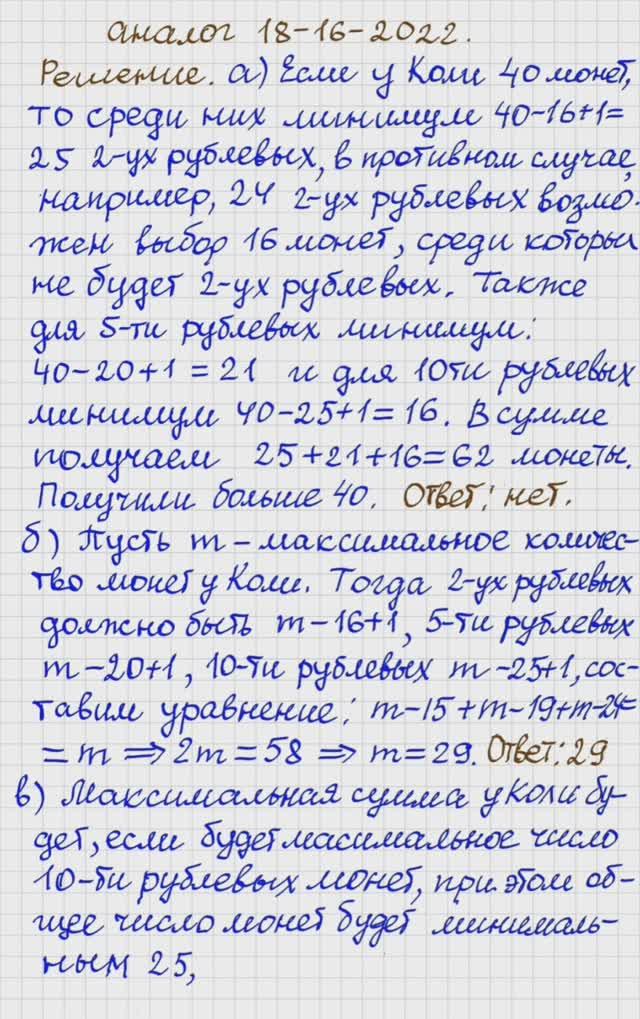 аналог 18-16-2022.
Решение. а) Если у Коли 40 монет,
то среди них минимум 40-16+1=
25 2-ух рублевых, в противном случае,
например, 24 2-ух рублевых возмо-
жен выбор 16 монет, среди которых
не будет 2-ух рублевых. Также
для 5-ти рублевых минимум:
40-20+1=21 и для 10ти рублевых
минимум 40-25+1=16. В сумме
получаем 25+21+16=62 монеты.
Получили больше 40. Ответ: нет.
б) Пусть m - максимальное количес-
тво монет у Коли. Тогда 2-ух рублевых
должно быть m-16+1, 5-ти рублевых
m-20+1, 10-ти рублевых m-25+1, сос-
тавим уравнение: m-15+m-19+m-24=
=m ⇒ 2m=58 ⇒ m=29. Ответ: 29
в) Максимальная сумма у Коли бу-
дет, если будет масимальное число
10-ти рублевых монет, при этом об-
щее число монет будет минималь-
ным 25,